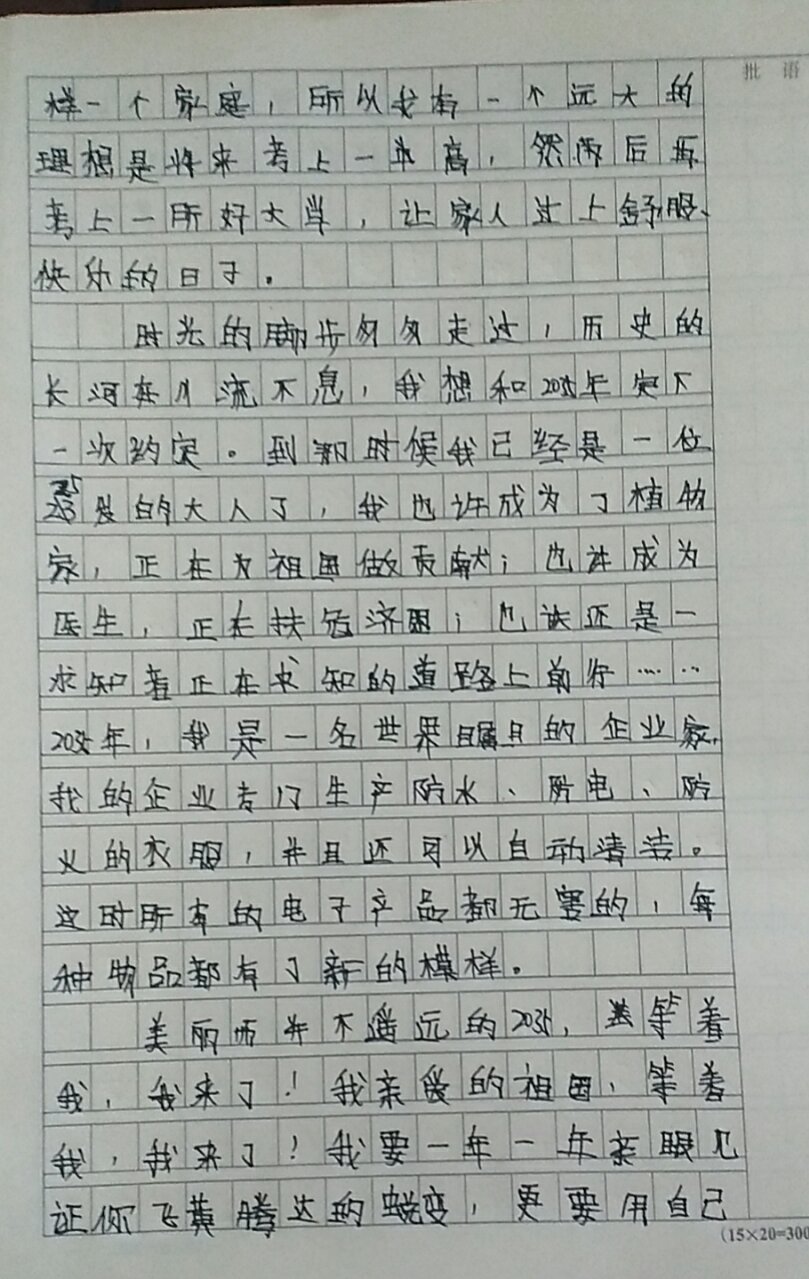 批 语
样一个家庭，所以我有一个远大的
理想是将来考上一本高，然而后再
考上一所好大学，让家人过上舒服、
快乐的日子。
时光的脚步匆匆走过，历史的
长河在川流不息，我想和2035年定下
一次约定。到那时候我已经是一位
岁的大人了，我也许成为了植物
家，正在为祖国做贡献；也许成为
医生，正在扶危济困；也许还是一
求知者正在求知的道路上前行……
2035年，我是一名世界瞩目的企业家，
我的企业专门生产防水、防电、防
火的衣服，并且还可以自动清洁。
这时所有的电子产品都无害的，每
种物品都有了新的模样。
美丽而并不遥远的2035，等着
我，我来了！我亲爱的祖国，等着
我，我来了！我要一年一年亲眼见
证你飞黄腾达的蜕变，更要用自己
(15×20=300